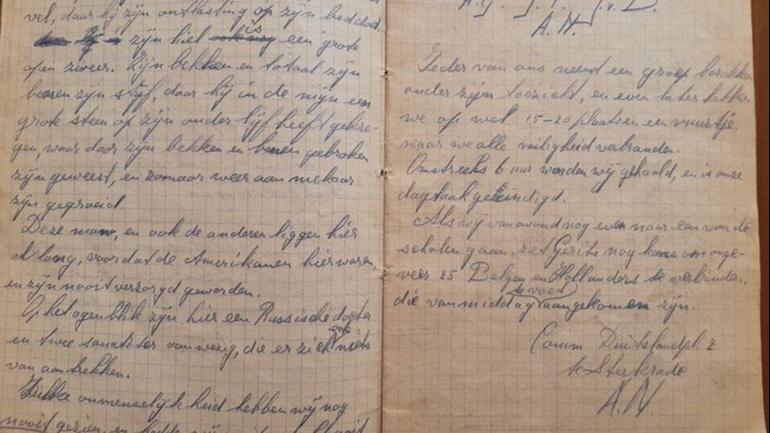 vel, daar hij zijn ontlasting op zijn bed doet.
zijn hiel is een grote
open zweer. Zijn bekken en totaal zijn
benen zijn stijf, daar hij in de mijn een
grote steen op zijn onderlijf heeft gekre-
gen, waar door zijn bekken en benen gebroken
zijn geweest, en zomaar weer aan mekaar
zijn gegroeid.
Deze man, en ook de anderen liggen hier
al lang, voordat de Amerikanen hier waren
en zijn nooit verzorgd geworden.
Op het ogenblik zijn hier een Russische dogter
en twee sanitäter aanwezig, die er zich niets
van aantrekken.
Zulke onmenselijkheid hebben wij nog
nooit gezien, en
A.N.
Ieder van ons neemt een groep barakken
onder zijn toezicht, en even later hebben
we op wel 15-20 plaatsen een vuurtje,
waar we alle vuiligheid verbranden.
Omstreeks 6 uur worden wij gehaald, en is onze
dagtaak geëindigd.
Als wij vanavond nog even naar een van de
scholen gaan, ziet Gerits nog kans om onge-
veer 25 Belgen en Hollanders te verbinden,
die van middag te voet aangekomen zijn.
Comm. Duitslandpl. 2
te Sterkrade
A.N.